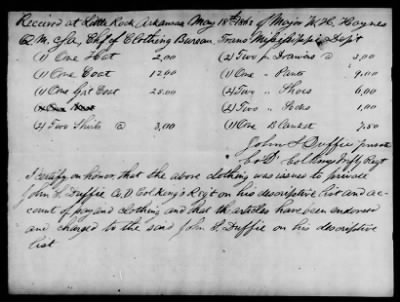 Received at Little Rock Arkansas May 18th 1863 of Major W. H. Haynes
Q. M. CSA, Chf of Clothing Bureau Trans Mississippi Dep't
(1) One Hat 2,00 (2) Two pr Drawers @ 2,00
(1) One Coat 12,00 (1) One " Pants 9,00
(1) One Grt Coat 25,00 (2) Two " Shoes 6,00
(2) Two " Socks 1,00
(2) Two Shirts @ 3,00 (1) One Blanket 7,50
John S Duffie private
Co D Col Kings Regt
I certify on honor that the above clothing was issued to private
John S. Duffie Co. D Col King's Reg't on his descriptive list and ac-
count of pay and clothing and that the articles have been endorsed
and charged to the said John S. Duffie on his descriptive
list